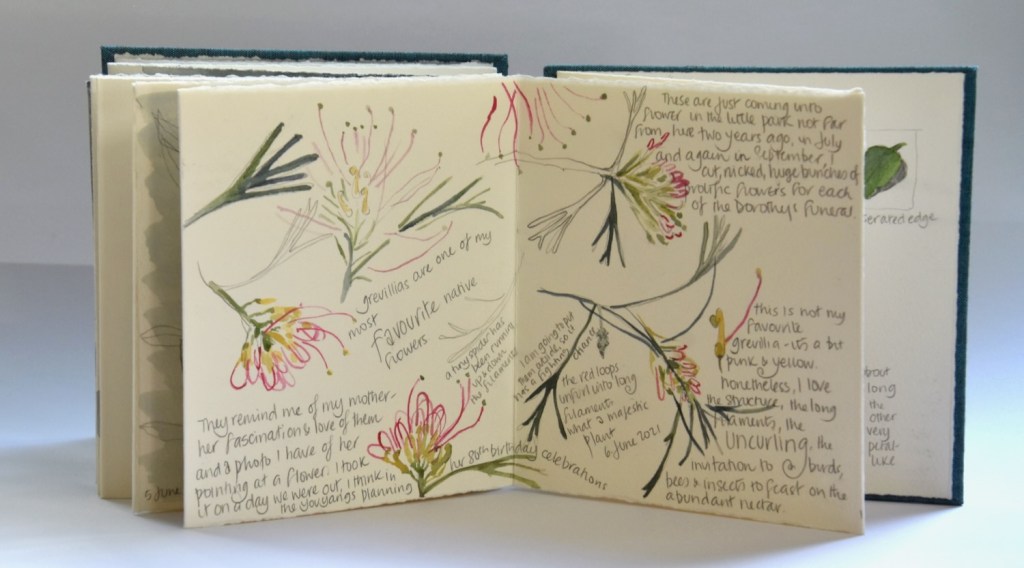 grevillias are one of my
most
favourite native
flowers
They remind me of my mother-
her fascination & love of them
and a photo I have of her
pointing at a flower. I took
it on a day we were out, I think in
the youyangs planning
her 80th birthday celebrations
a tiny spider has
been running
up & down
the filaments
I am going to put
has a fighting chance
the red loops
unfurl into long
filaments
what a majestic
plant
6 June 2021
These are just coming into
flower in the little park not far
from here two years ago, in July
and again in September, I
cut, nicked, huge bunches of
prolific flowers for each
of the Dorothy's funerals.
this is not my
favourite
grevillia - its a bit
pink & yellow.
nonetheless, I love
the structure, the long
filaments, the
uncurling, the
invitation to birds,
bees & insects to feast on the
abundant nectar.
5 June
serrated edge
about
long
the
other
very
petal-
like